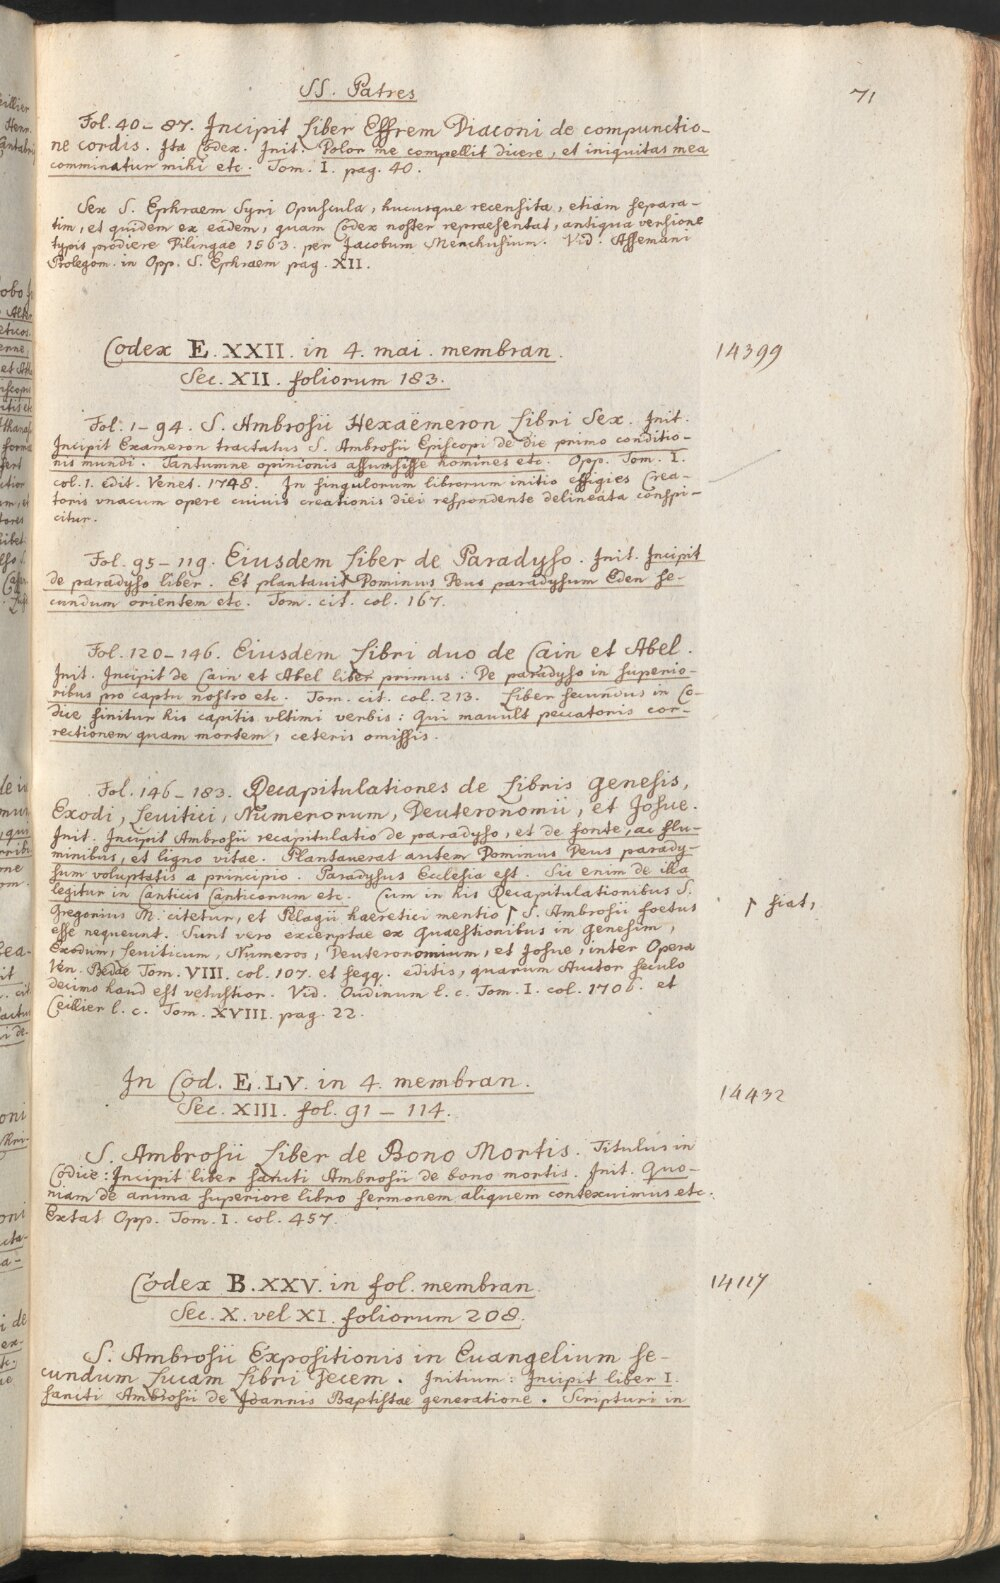 SS. Patres
71
Fol. 40–87. Incipit Liber Effrem Diaconi de compunctio-
ne cordis. Ita Codex. Init. Dolor me compellit dicere, et iniquitas mea
comminatur mihi etc. Tom. I. pag. 40.
Sex S. Ephraem Syri Opuscula, hucusque recensita, etiam separa-
tim, et quidem ex eadem, quam Codex noster repraesentat, antiqua versione
typis prodiere Dilingae 1563. per Jacobum Menchusium. Vid. Assemani
Prolegom. in Opp. S. Ephraem pag. XII.
Codex E. XXII. in 4. mai. membran.
14399
Sec. XII. foliorum 183.
Fol. 1–94. S. Ambrosii Hexaëmeron Libri Sex. Init.
Incipit Exameron tractatus S. Ambrosii Episcopi de die primo conditio-
nis mundi. Tantumne opinionis assumsisse homines etc. Opp. Tom. I.
col. 1. Edit. Venet. 1748. In singulorum librorum initio effigies Crea-
toris vnacum opere cuiuis creationis diei respondente delineata conspi-
citur.
Fol. 95–119. Eiusdem Liber de Paradyso. Init. Incipit
de paradyso liber. Et plantauit Dominus Deus paradysum Eden se-
cundum orientem etc. Tom. cit. col. 167.
Fol. 120–146. Eiusdem Libri duo de Cain et Abel.
Init. Incipit de Cain et Abel liber primus: De paradyso in superio-
ribus pro captu nostro etc. Tom. cit. col. 213. Liber secundus in Co-
dice finitur his capitis vltimi verbis: Qui mauult peccatoris cor-
rectionem quam mortem, ceteris omissis.
Fol. 146–183. Recapitulationes de Libris Genesis,
Exodi, Leuitici, Numerorum, Deuteronomii, et Josue.
Init. Incipit Ambrosii recapitulatio de paradyso, et de fonte, ac flu-
minibus, et ligno vitae. Plantauerat autem Dominus Deus parady-
sum voluptatis a principio. Paradysus Ecclesia est. Sic enim de illa
legitur in Canticis Canticorum etc. Cum in his Recapitulationibus S.
Gregorius M. citetur, et Pelagii haeretici mentio ↾ S. Ambrosii foetus
↾ fiat,
esse nequeunt. Sunt vero excerptae ex Quaestionibus in Genesim,
Exodum, Leuiticum, Numeros, Deuteronomium, et Josue, inter Opera
Ven. Bedae Tom. VIII. col. 107. et seqq. editis, quarum Auctor seculo
decimo haud est vetustior. Vid. Oudinum l. c. Tom. I. col. 1706. et
Ceillier l. c. Tom. XVIII. pag. 22.
In Cod. E. LV. in 4. membran.
14432
Sec. XIII. fol. 91–114.
S. Ambrosii Liber de Bono Mortis. Titulus in
Codice: Incipit liber sancti Ambrosii de bono mortis. Init. Quo-
niam de anima superiore libro sermonem aliquem contexuimus etc.
Extat Opp. Tom. I. col. 457.
Codex B. XXV. in fol. membran.
14117
Sec. X. vel XI. foliorum 208.
S. Ambrosii Expositionis in Euangelium se-
cundum Lucam Libri Decem. Initium: Incipit liber I.
sancti Ambrosii de Joannis Baptistae generatione. Scripturi in